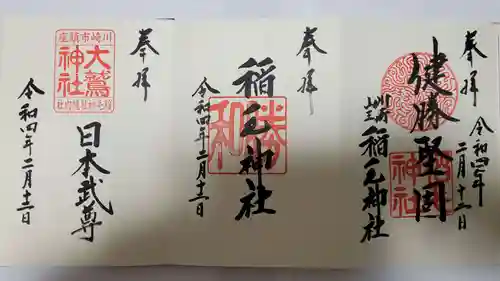 奉拝
健勝堅固
川崎
山王
稲毛神社
令和四年
二月十三日
奉拝
稲毛神社
勝
和
令和四年二月十三日
奉拝
川崎市鎮座
大鷲神社
日本武尊
令和四年二月十三日